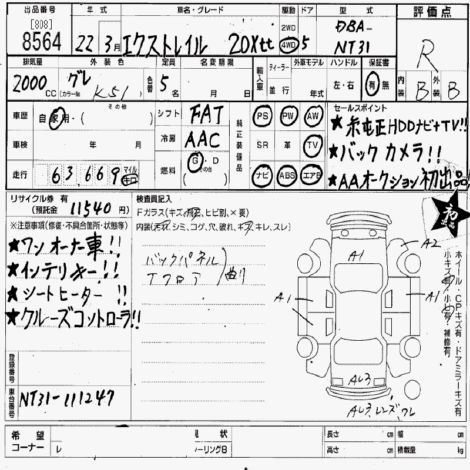 出品番号 年式 車名・グレード 駆動 ドア 型式 評価点
[808] 8564 22年 3月 エクストレイル 20Xtt 2WD 4WD 5 DBA- NT31 R
排気量 外装色 定員 名変期限 輸入車 ディーラー 外車モデル ハンドル 保証書 内装 B 外装 B
2000 CC グレ (カラーNo. K51) 色替 5名 年 月 日 並行 年式 左・右 有・無
車歴 自家用・その他 シフト FAT 純正装備品 PS PW AW セールスポイント
車検 年 月 冷房 AAC SR 革 TV ★純正HDDナビ+TV!!
走行 63,669 マイル キロ 燃料 G・D その他 ナビ ABS エアB ★バックカメラ!!
★AAオークション初出品!!
リサイクル券 有
(預託金 11540 円)
※注意事項(修復・不具合箇所・状態等)
★ワンオーナー車!!
★インテリキー!!
★シートヒーター!!
★クルーズコントロール!!
登録番号
車台番号 NT31-111247
検査員記入
Fガラス(キズ,飛石,ヒビ割,×要)
内装(汚れ,シミ,コゲ,穴,破れ,キズ,キレ,スレ)
バックパネル
曲り
A1
A2
A1
A1
AL3
AL3、レンズワレ
ホイール・CPキズ有・ドアミラーキズ有
小キズ有・小凹有・補修有
希望コーナー
状
ーリングB
長さ cm 幅 cm
高さ cm 積載量 kg